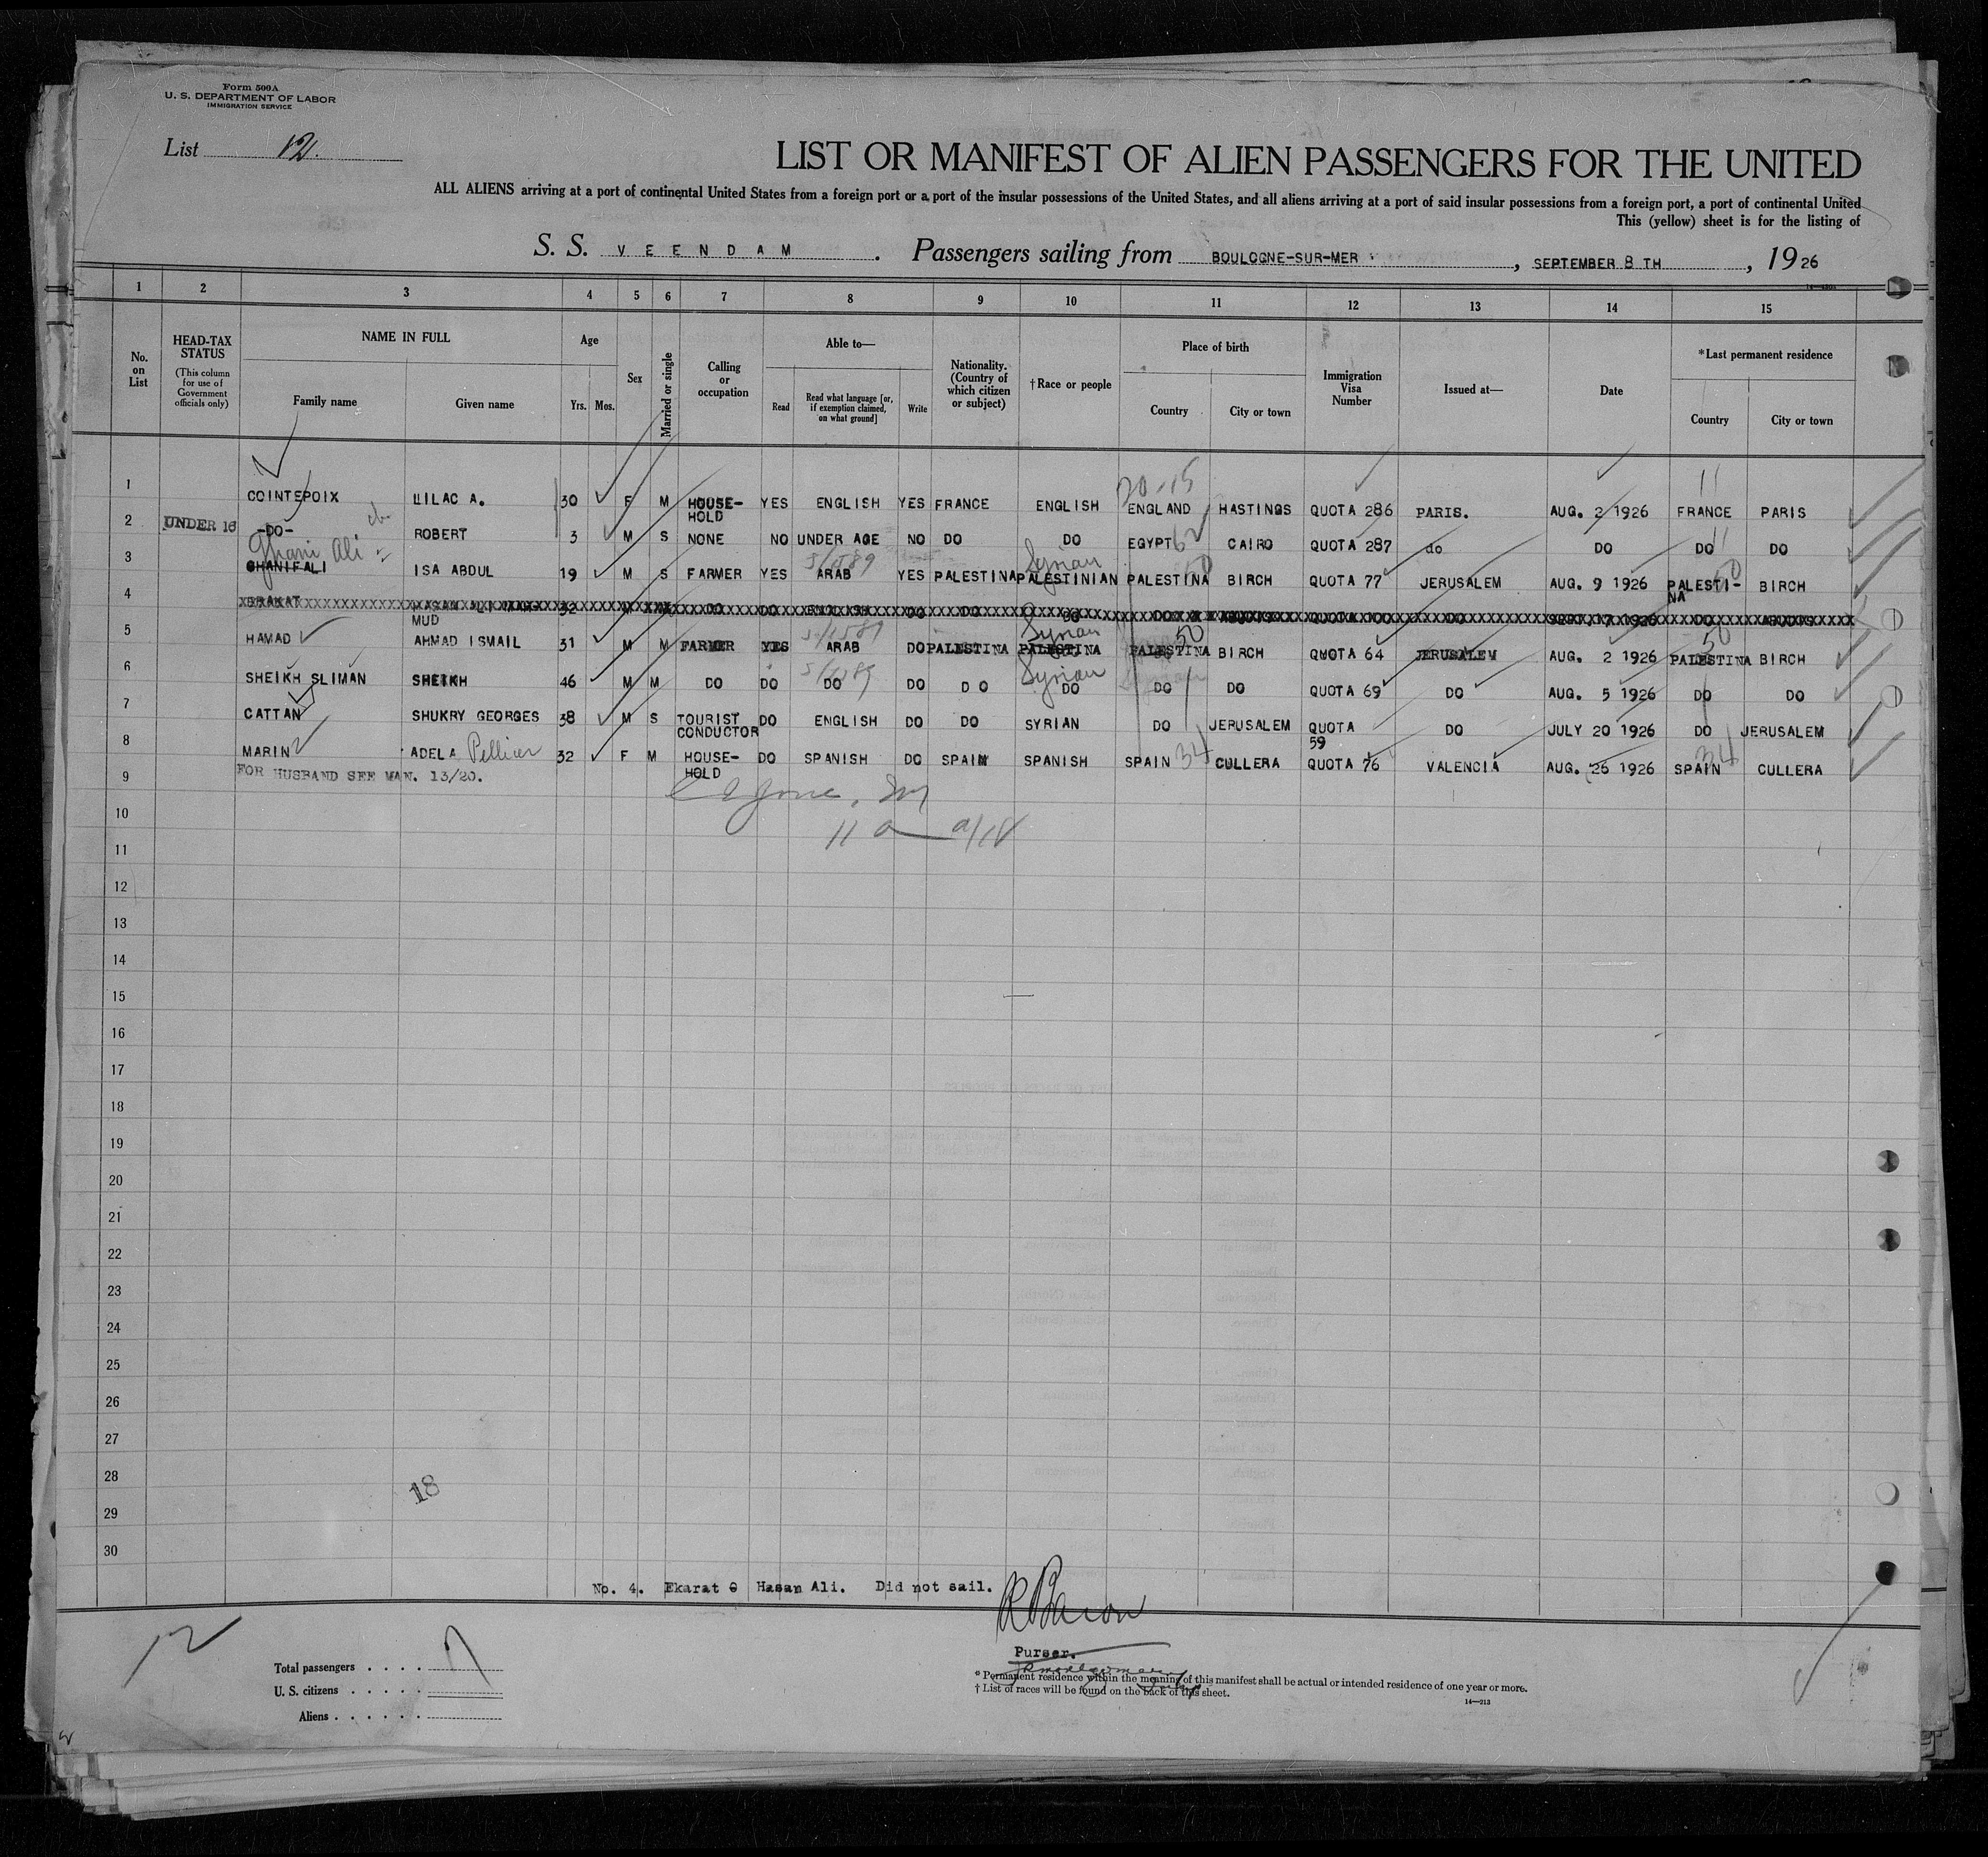 Form 500A
U. S. DEPARTMENT OF LABOR
IMMIGRATION SERVICE
List 12.
LIST OR MANIFEST OF ALIEN PASSENGERS FOR THE UNITED
ALL ALIENS arriving at a port of continental United States from a foreign port or a port of the insular possessions of the United States, and all aliens arriving at a port of said insular possessions from a foreign port, a port of continental United
This (yellow) sheet is for the listing of
S. S. VEENDAM . Passengers sailing from BOULOGNE-SUR-MER , SEPTEMBER 8 TH , 1926
1 2 3 4 5 6 7 8 9 10 11 12 13 14 15
No. on List
HEAD-TAX STATUS
(This column for use of Government officials only)
NAME IN FULL
Family name Given name
Age
Yrs. Mos.
Sex
Married or single
Calling or occupation
Able to—
Read Read what language [or, if exemption claimed, on what ground] Write
Nationality. (Country of which citizen or subject)
†Race or people
Place of birth
Country City or town
Immigration Visa Number
Issued at—
Date
*Last permanent residence
Country City or town
1 COINTEPOIX LILAC A. 30 F M HOUSE-HOLD YES ENGLISH YES FRANCE ENGLISH 20-15 ENGLAND HASTINGS QUOTA 286 PARIS. AUG. 2 1926 11 FRANCE PARIS
2 UNDER 16 -DO- ROBERT 3 M S NONE NO UNDER AGE NO DO DO EGYPT 62 CAIRO QUOTA 287 do DO DO 11 DO
3 Ghani Ali GHANIFALI ISA ABDUL 19 M S FARMER YES 5/1589 ARAB YES PALESTINA Syrian PALESTINIAN PALESTINA 50 BIRCH QUOTA 77 JERUSALEM AUG. 9 1926 PALESTI-NA 50 BIRCH
4 HASAN ALI 32 M DO DO ENGLISH DO DO DO DO QUOTA 100 DO SEPT. 17 1926 DO
5 HAMAD MUD AHMAD ISMAIL 31 M M FARMER YES 5/1589 ARAB DO PALESTINA Syrian PALESTINA PALESTINA 50 BIRCH QUOTA 64 JERUSALEM AUG. 2 1926 50 PALESTINA BIRCH
6 SHEIKH SLIMAN SHEIKH 46 M M DO DO 5/1589 DO DO DO Syrian DO DO DO QUOTA 69 DO AUG. 5 1926 DO DO
7 CATTAN SHUKRY GEORGES 38 M S TOURIST CONDUCTOR DO ENGLISH DO DO SYRIAN DO JERUSALEM QUOTA 59 DO JULY 20 1926 DO JERUSALEM
8 MARIN ADELA Pellicer 32 F M HOUSE-HOLD DO SPANISH DO SPAIN SPANISH SPAIN 34 CULLERA QUOTA 76 VALENCIA AUG. 26 1926 SPAIN 34 CULLERA
9 FOR HUSBAND SEE MAN. 13/20.
10
11
12
13
14
15
16
17
18
19
20
21
22
23
24
25
26
27
28
18
29
30
No. 4. Ekarat Hasan Ali. Did not sail.
12
Total passengers . . . . 7
U. S. citizens . . . . .
Aliens . . . . . .
Purser.
* Permanent residence within the meaning of this manifest shall be actual or intended residence of one year or more.
† List of races will be found on the back of this sheet.
14—213